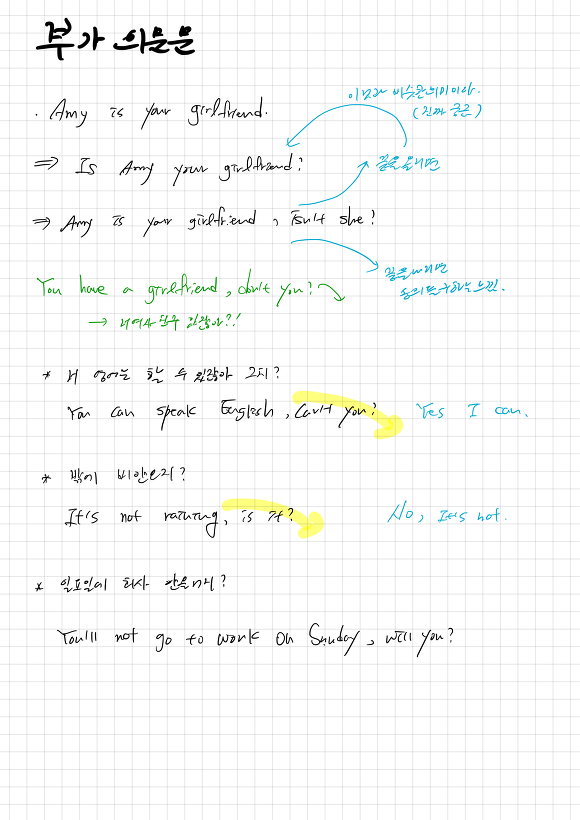 부가 의문문
이거랑 비슷한 의미이다.
(진짜 궁금)
. Amy is your girlfriend.
⇒ Is Amy your girlfriend?
끝을 올리면
⇒ Amy is your girlfriend, isn't she?
끝을 내리면
동의를 구하는 느낌.
You have a girlfriend, don't you?
→ 너 여자친구 있잖아?!
* 너 영어는 할 수 있잖아 그치?
You can speak English, can't you? Yes I can.
* 밖에 비안오지?
It's not raining, is it? No, It's not.
* 일요일에 회사 안올꺼지?
You'll not go to work on Sunday, will you?